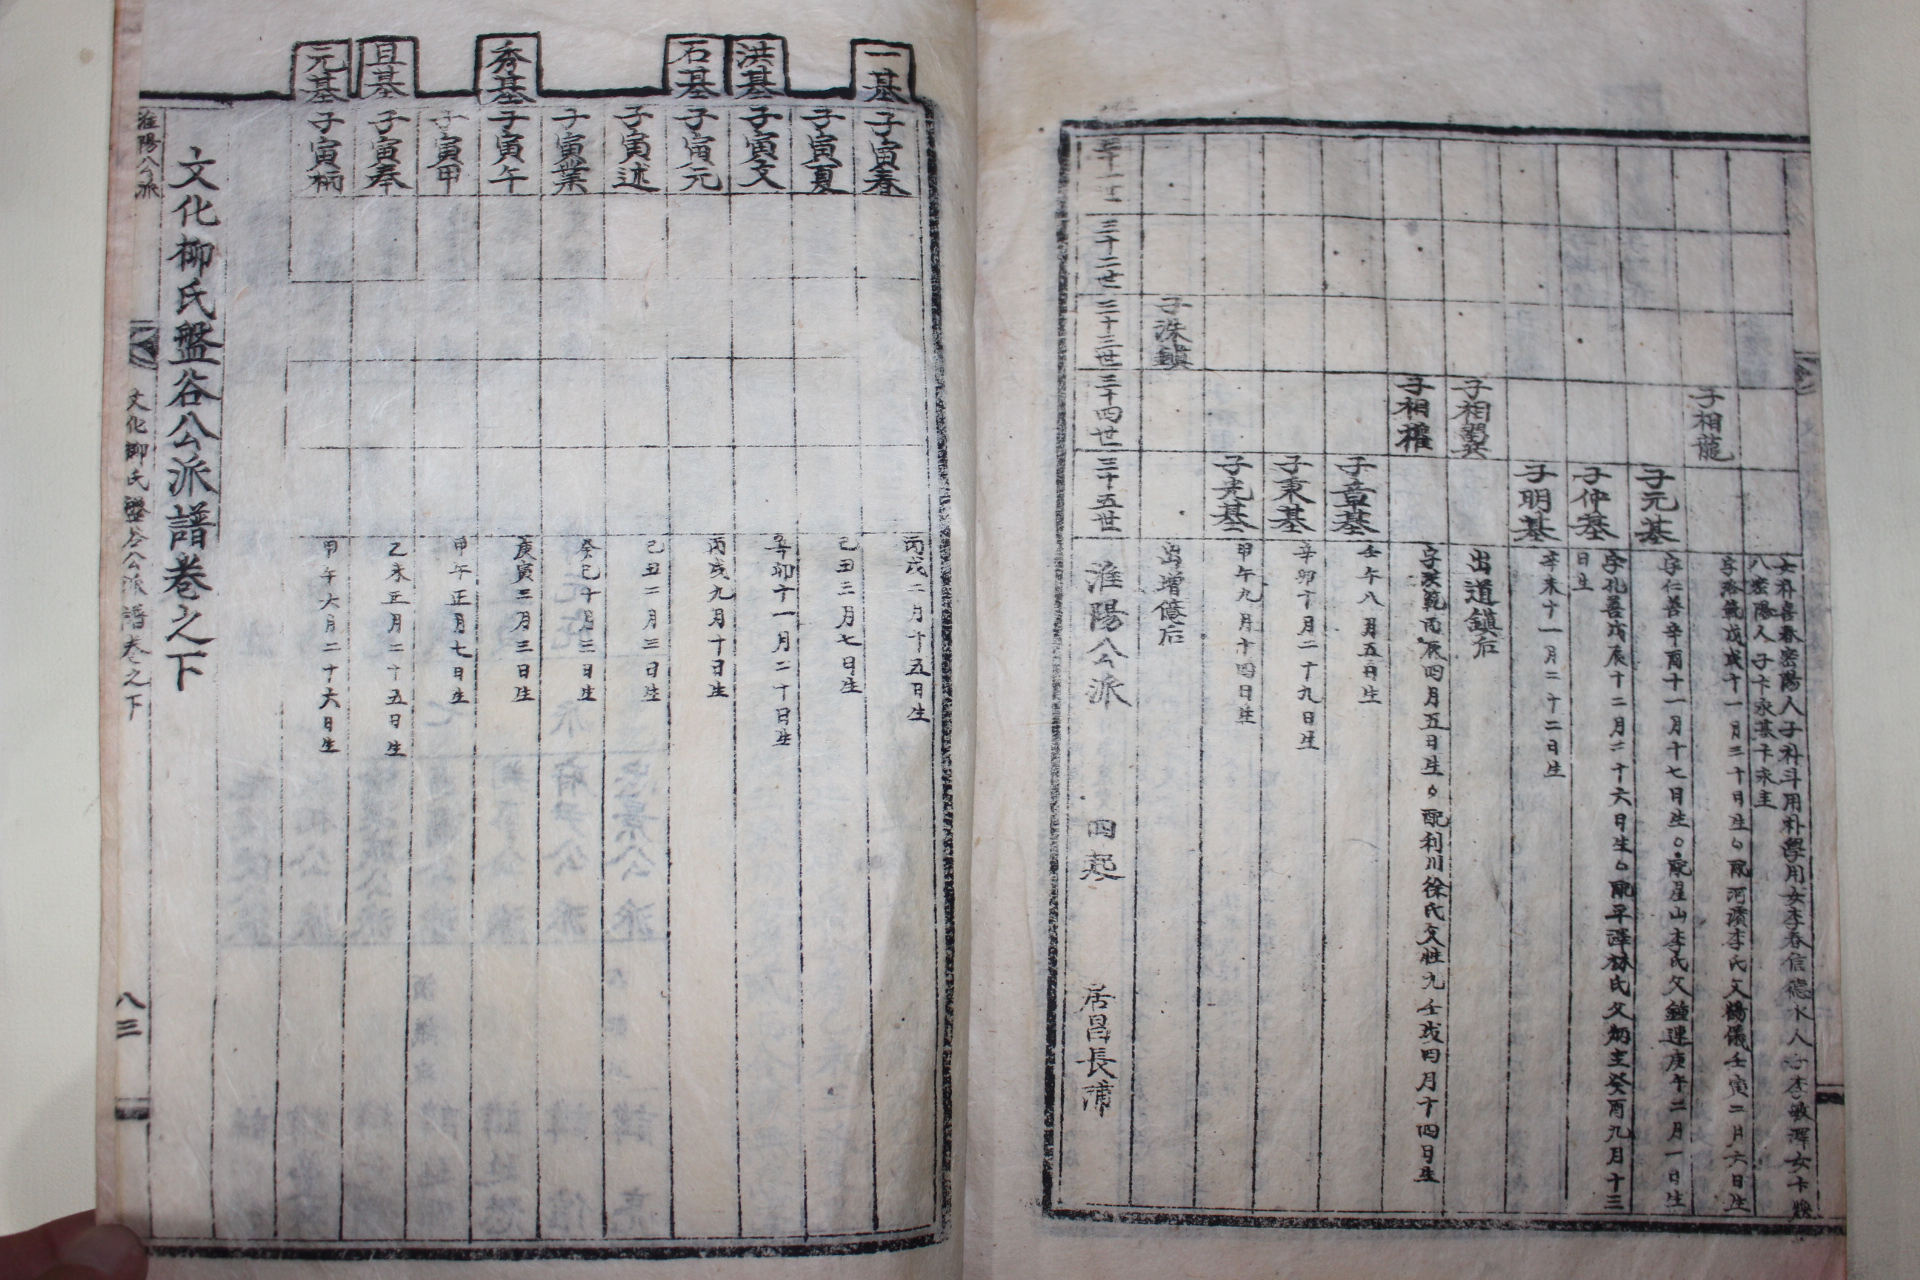 女朴喜春密陽人子朴斗用朴學用女李春信德水人子李敏渾女卞
八密陽人子卞永基卞永主
子相龍
字洛範戊戌十一月三十日生○配河濱李氏父鶴儀壬寅二月六日生
子元基
字仁善辛酉十一月十七日生○配星山李氏父鍾連庚午二月一日生
子仲基
字孔善戊辰十二月二十六日生○配平澤林氏父炳主癸酉九月十三
日生
子明基
辛未十一月二十二日生
子相巽
出道鎮后
子相權
字漢範丙辰四月五日生○配利川徐氏父性九壬戌四月十四日生
子章基
壬午八月五日生
子秉基
辛卯十月二十九日生
子光基
甲午九月十四日生
子洙鎮
出增億后
三十一世
三十二世
三十三世
三十四世
三十五世
淮陽公派
四起
居昌長蒲
一基
子寅春
丙戌一月十五日生
子寅夏
己丑三月七日生
洪基
子寅文
辛卯十一月二十日生
石基
子寅元
丙戌九月十日生
子寅述
己丑二月三日生
子寅業
癸巳十月二日生
秀基
子寅午
庚寅三月三日生
子寅甲
甲午正月七日生
且基
子寅奉
乙未正月二十五日生
元基
子寅柄
甲午六月二十六日生
文化柳氏盤谷公派譜卷之下
淮陽公派
文化柳氏盤谷公派譜卷之下
八三